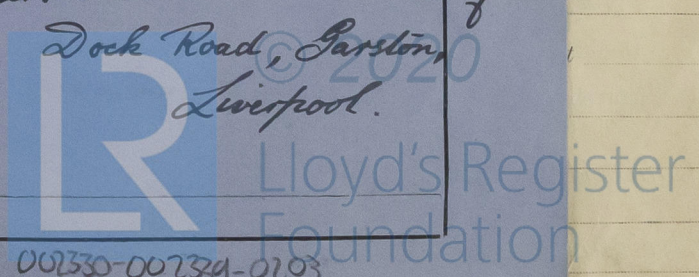 Dock Road, Garston,
Liverpool.
© 2020
LR
Lloyd's Register
Foundation
002330-002339-0203